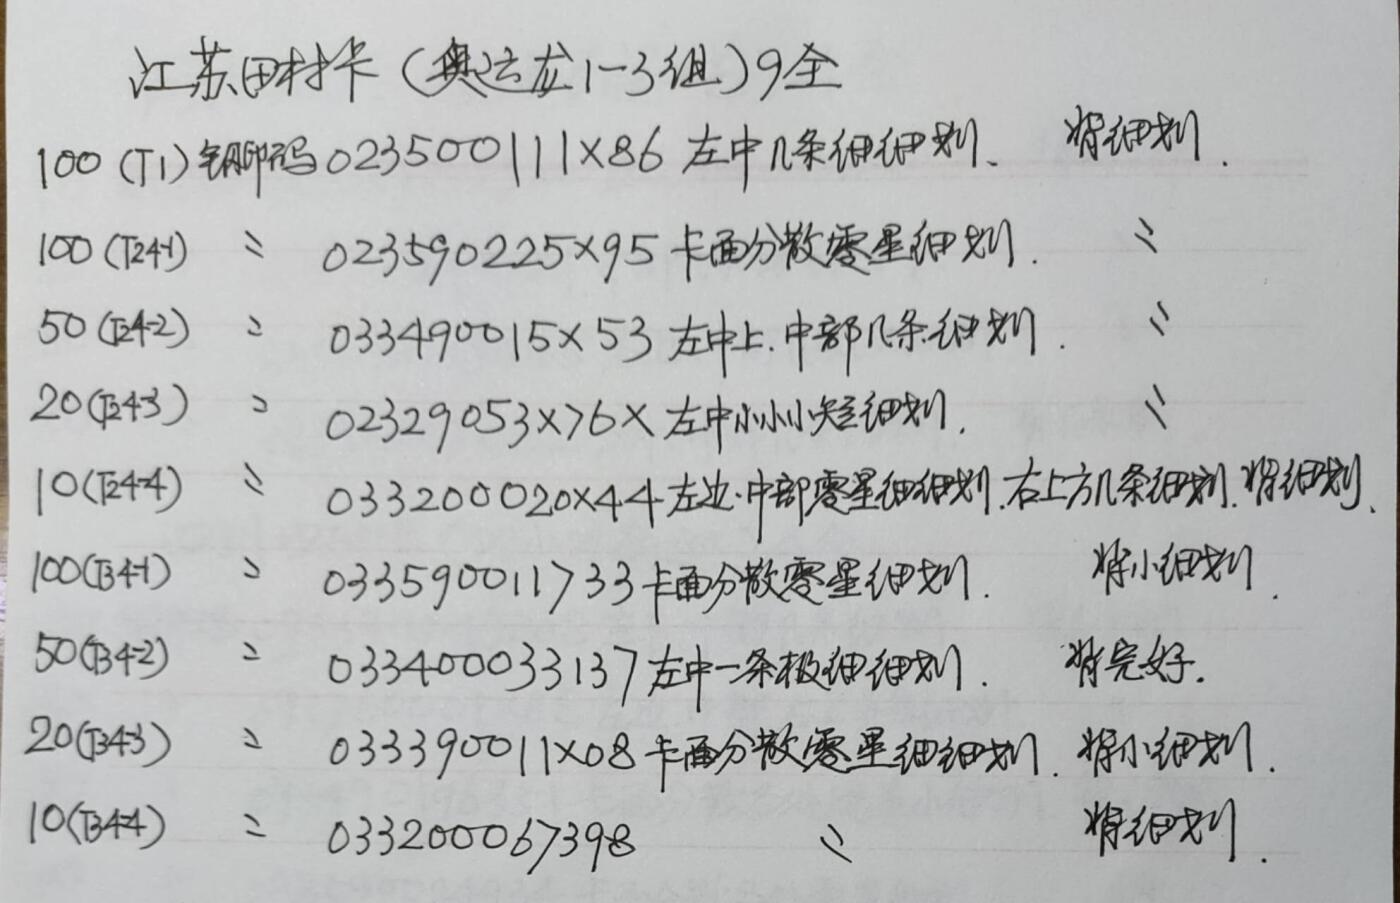 江苏田村卡(奥运龙1-3组)9全
100(T1)钢印码023500111X86左中几条细细划、背细划.
100(T24-1) 〃 023590225X95卡面分散零星细划. 〃
50(T24-2) 〃 033490015X53左中上.中部几条细划. 〃
20(T24-3) 〃 02329053X76X左中小小小短细划. 〃
10(T24-4) 〃 033200020X44左边.中部零星细细划.右上方几条细划.背细划、
100(T34-1) 〃 033590011733卡面分散零星细划. 背小细划.
50(T34-2) 〃 033400033137左中一条极细细划. 背完好.
20(T34-3) 〃 033390011X08卡面分散零星细细划. 背小细划.
10(T34-4) 〃 033200067398 〃 背细划.